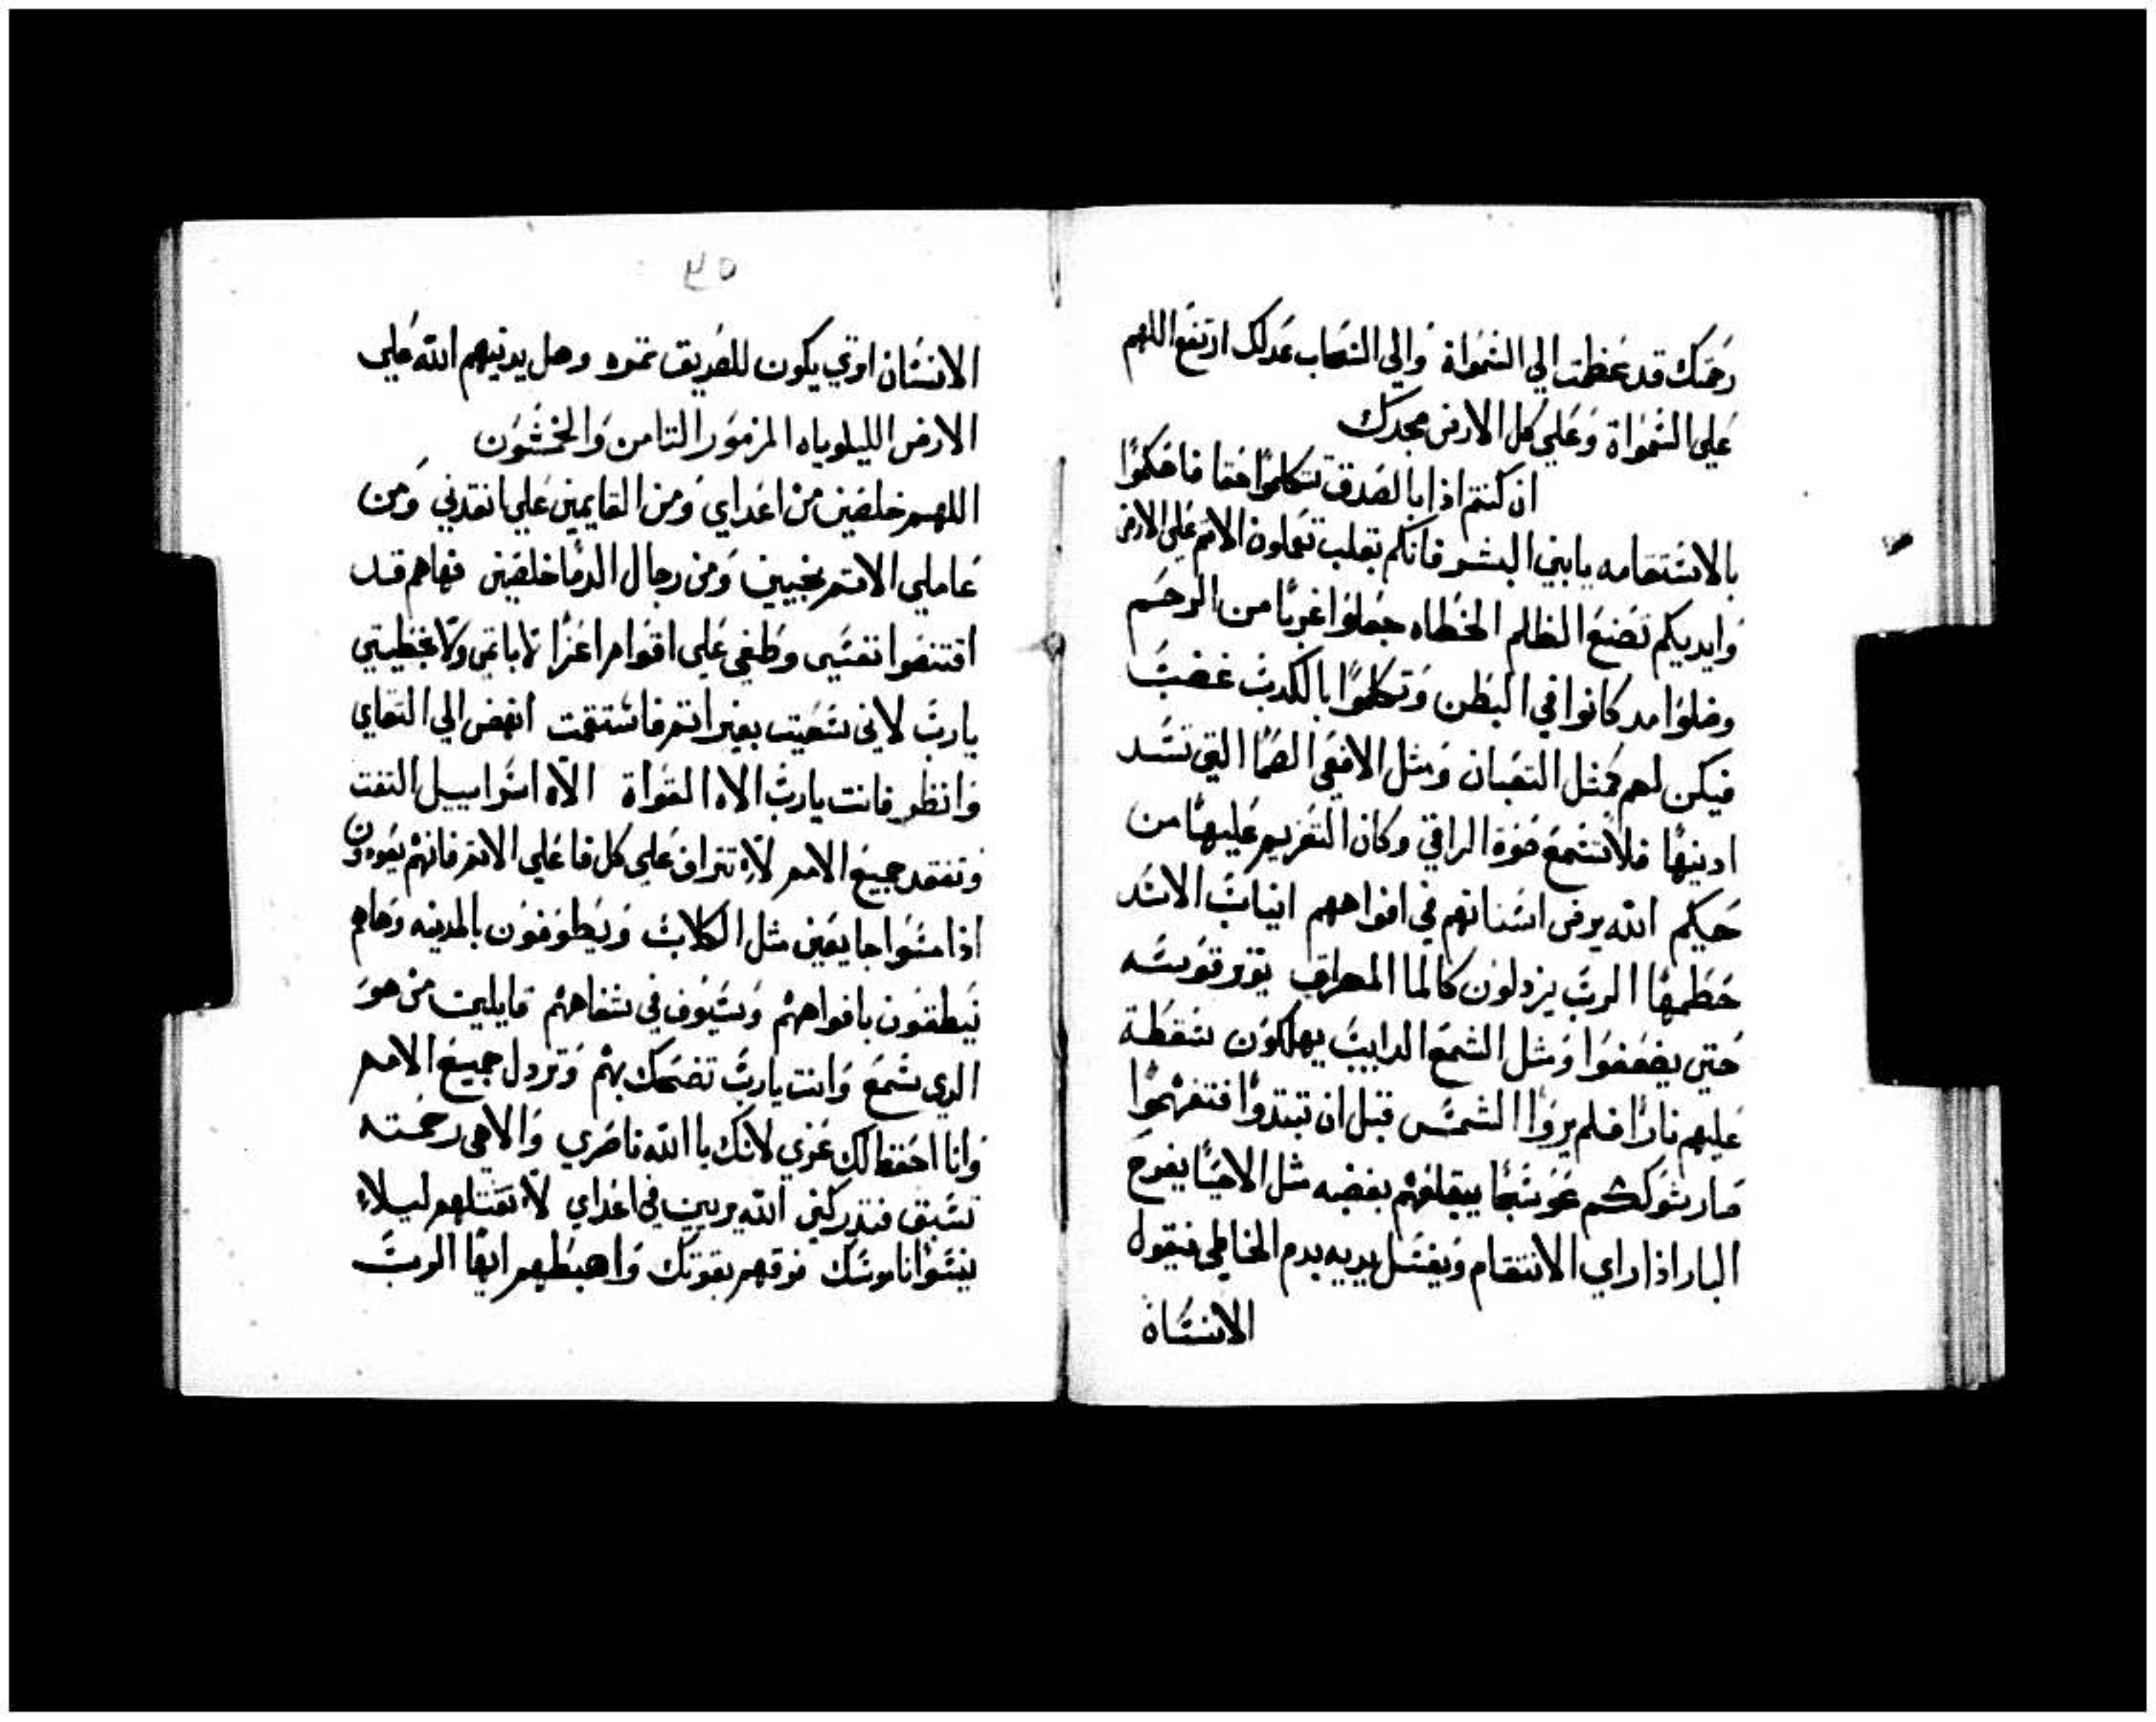 رحمتك قد عظمت الي السموات والي السحاب عدلك ارتفع اللهم
علي السمواة وعلي كل الارض مجدك
ان كنتم اذا بالصدق تتكلموا حقا فاحكموا
بالاستقامه يابني البشر فانكم بقلب تعملون الاثم علي الارض
وايديكم تصنع الظلم الخطاه جعلوا غربا من الرحم
وضلوا مد كانوا في البطن وتكلموا بالكدب غضب
فيكن لهم كمثل التعبان ومثل الافعي الصما التي تسد
ادنيها فلا تسمع صوة الراقي وكان التعزيم عليها من
حكيم الله يرض اسنانهم في افواههم انياب الاسد
حطمها الرب يزدلون كالما المهراق يوتر قوسه
حتي يضعفوا ومثل الشمع الدايب يهلكون سقطة
عليهم نارا فلم يروا الشمس قبل ان تبتدوا فتفهموا
صار شوككم عوسجا يبتلعهم بغضبه مثل الاحيا يفرح
البار اذا راي الانتقام ويغسل يديه بدم الخاطي فيقول
الانسان
٤٥
الانسان اوتي يكون للصديق تمره وهل يدنيهم الله علي
الارض الليلوياه المزمور التامن والخمسون
اللهم خلصني من اعداي ومن القايمين علي انقدني ومن
عاملي الاتم نجيني ومن رجال الدما خلصني فهاهم قد
اقتنصوا نفسي وطغي علي اقوام اعزا لا باتمي ولا بخطيتي
يارب لاني سعيت بغير اتم فاستقمت انهض الي التقاي
وانظر فانت يارب الاه القواة الاه اسراييل التفت
وتفقد جميع الامم لا تتراف علي كل فاعلي الاتم فانهم يعودون
اذا مسوا جايعين مثل الكلاب ويطوفون بالمدينه وهاهم
ينطقون بافواههم وسيوف في شفاههم قايلين من هو
الدي سمع وانت يارب تضحك بهم وتردل جميع الامم
وانا احفظ لك عزي لانك يا الله ناصري والاهي رحمته
تسبق فتدركني الله يريني في اعداي لا تقتلهم ليلا
ينسوا ناموسك فرقهم بقوتك واهبطهم ايها الرب